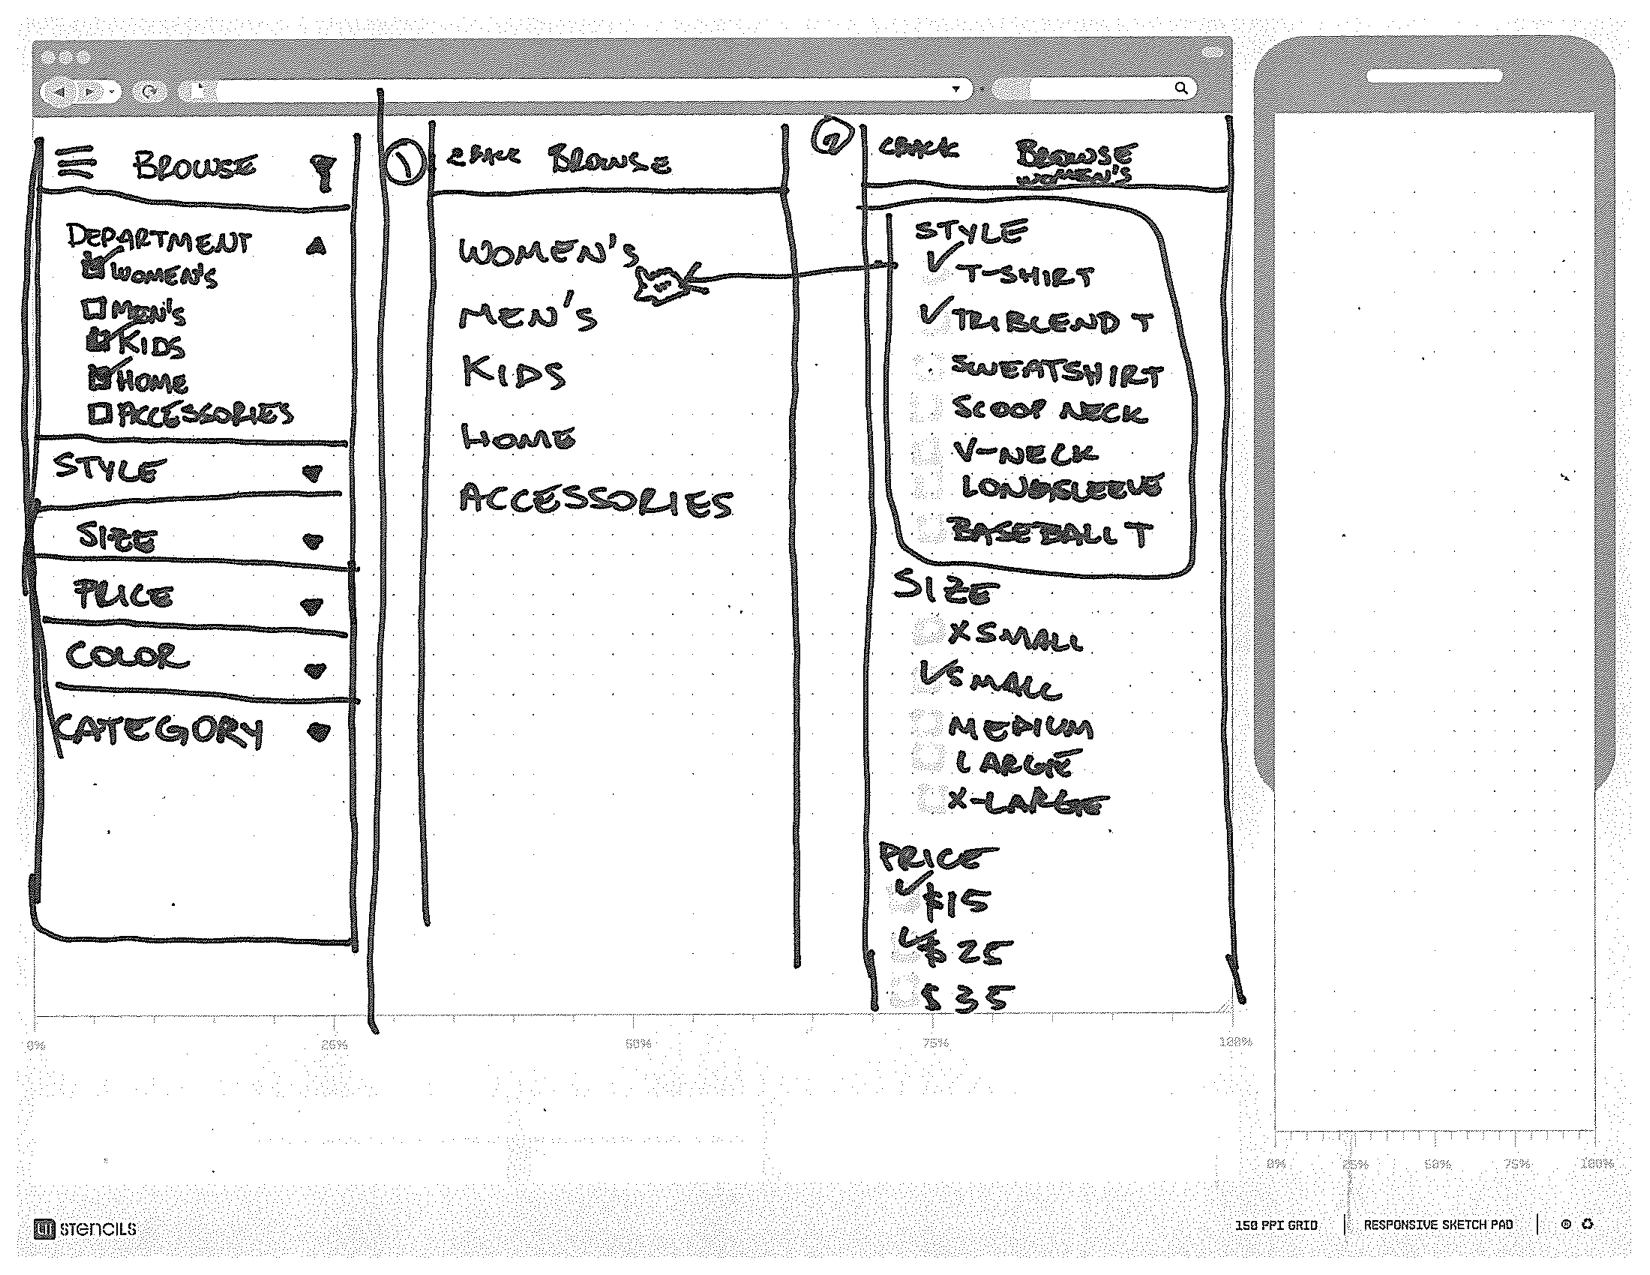 BROWSE
DEPARTMENT
WOMEN'S
MEN'S
KIDS
HOME
ACCESSORIES
STYLE
SIZE
PRICE
COLOR
CATEGORY
1
BROWSE
WOMEN'S
MEN'S
KIDS
HOME
ACCESSORIES
2
<BACK
BROWSE
WOMEN'S
STYLE
T-SHIRT
TRIBLEND T
SWEATSHIRT
SCOOP NECK
V-NECK
LONGSLEEVE
BASEBALL T
SIZE
X SMALL
SMALL
MEDIUM
LARGE
X-LARGE
PRICE
$15
$25
$35
0% 25% 50% 75% 100%
0% 25% 50% 75% 100%
UI STENCILS
150 PPI GRID | RESPONSIVE SKETCH PAD